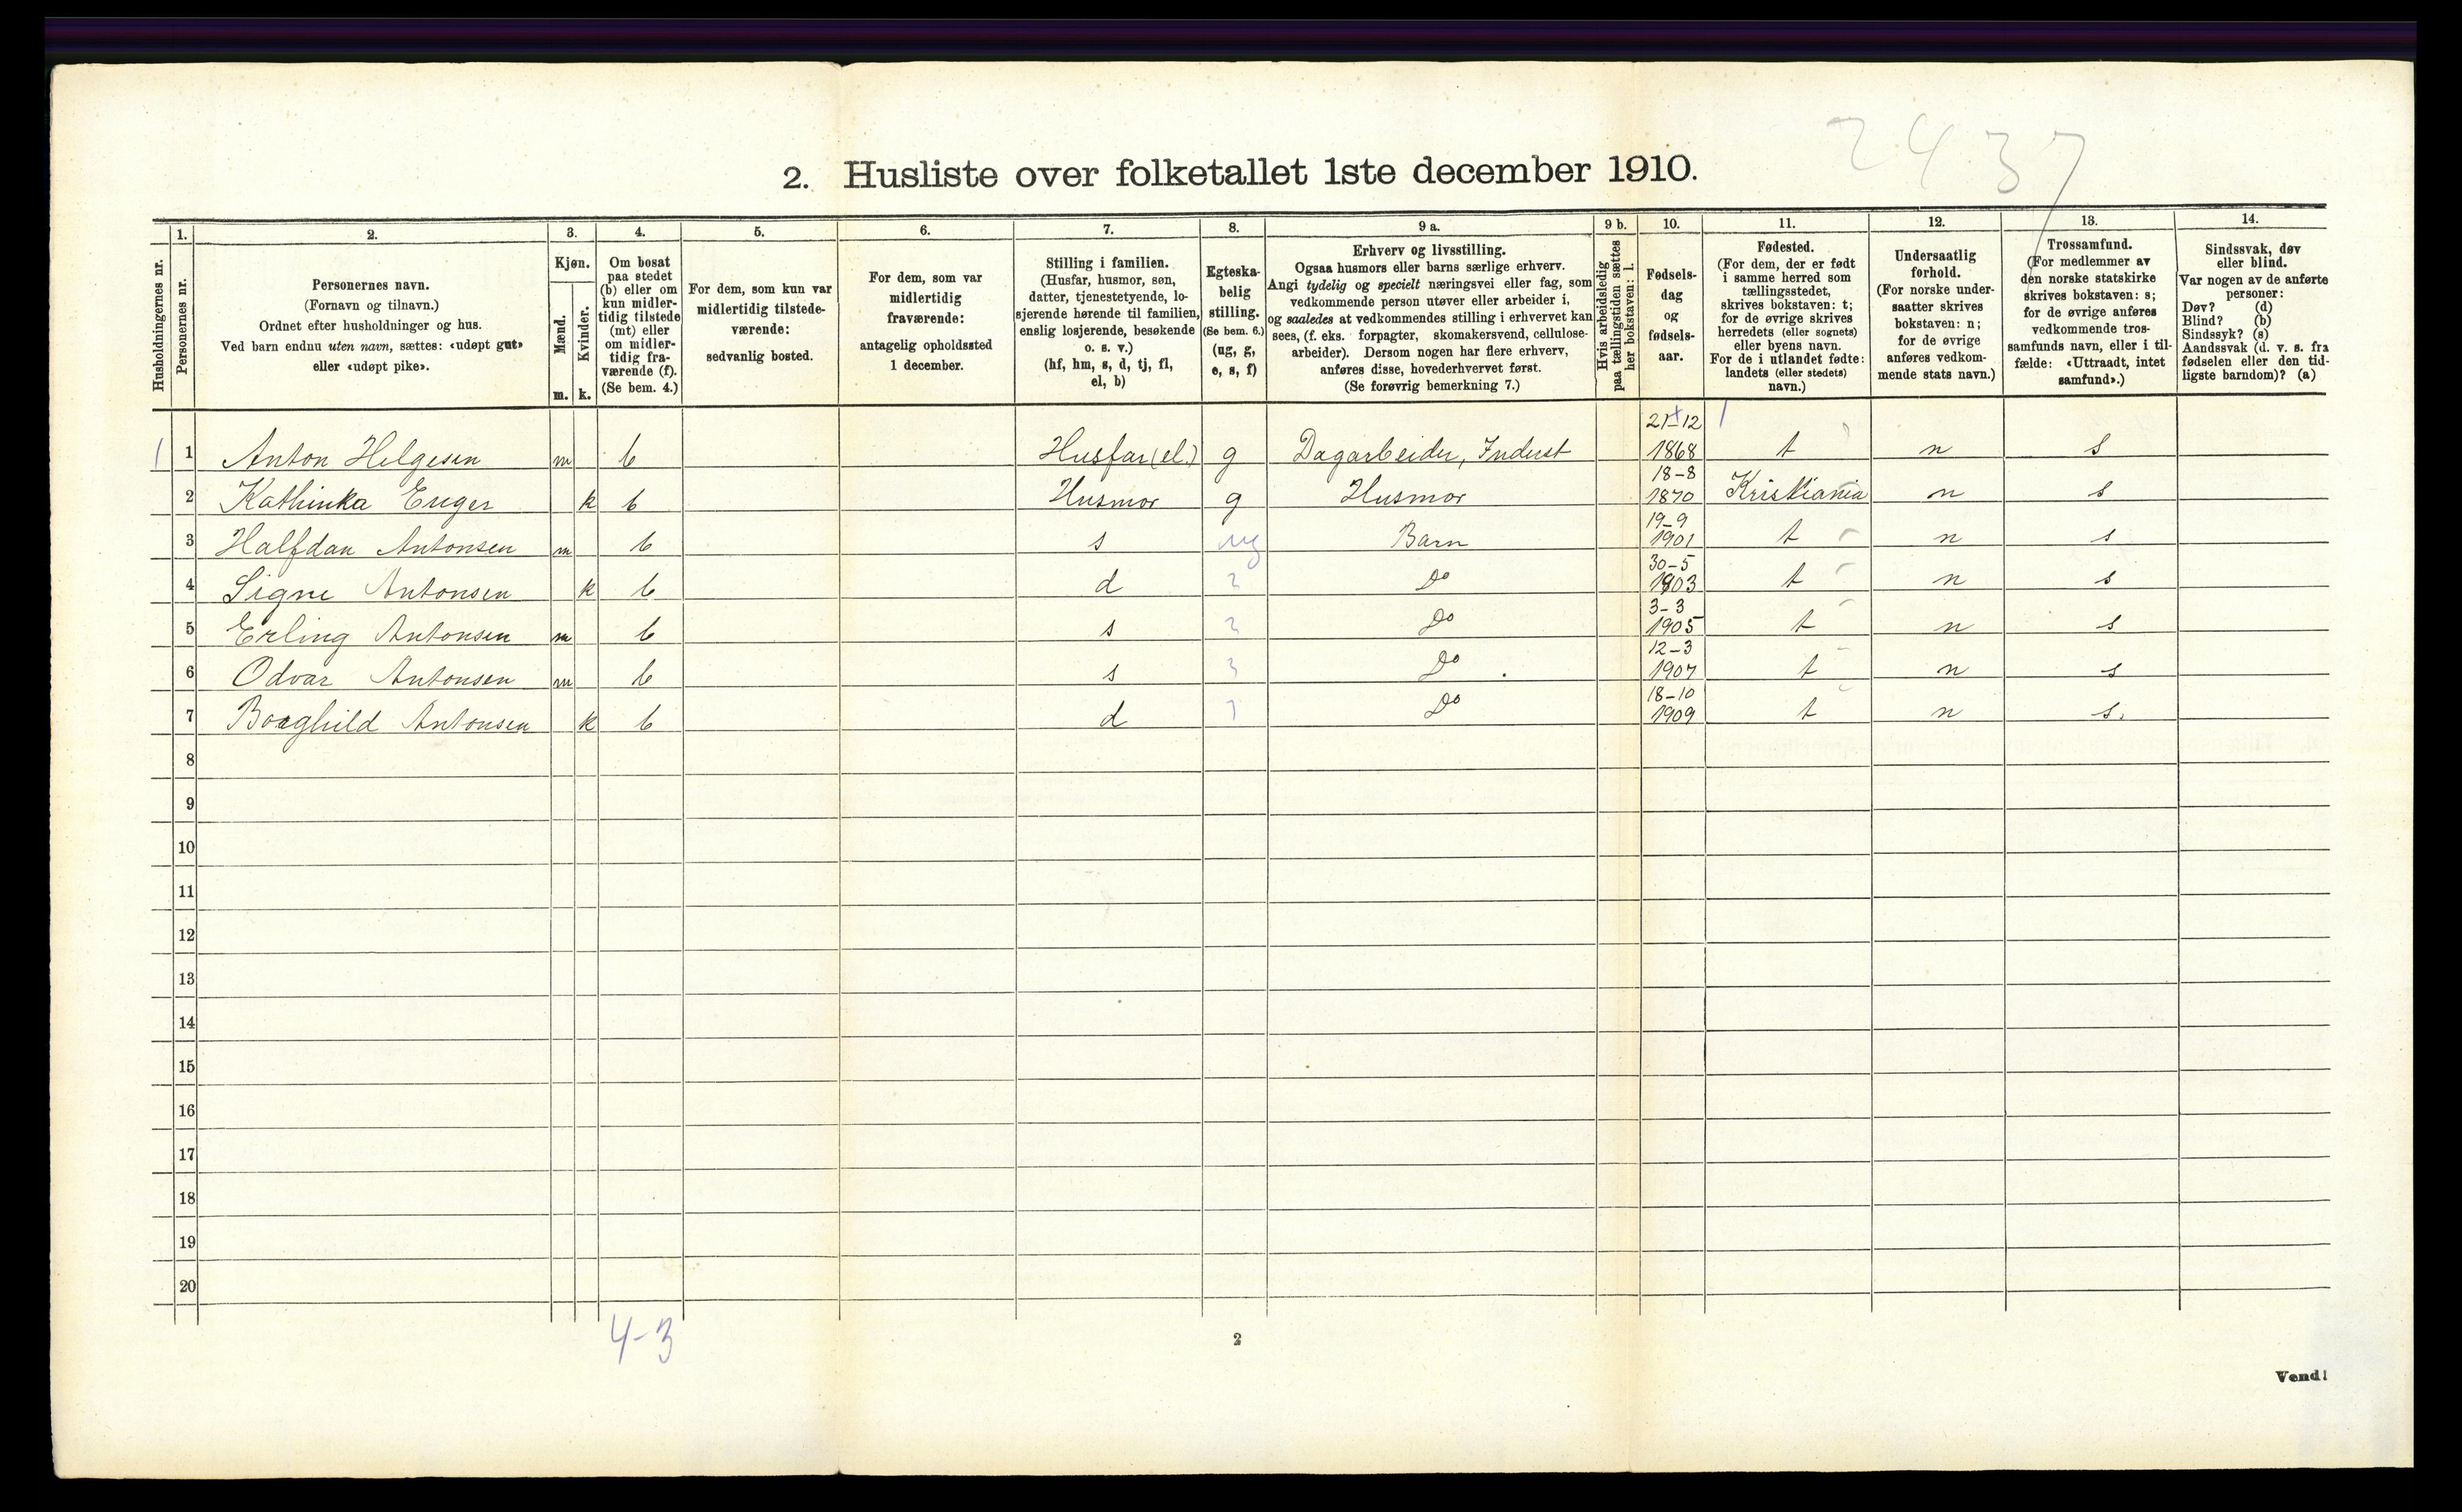 2437
2. Husliste over folketallet 1ste december 1910.
Husholdningernes nr.
1.
Personernes nr.
2.
Personernes navn.
(Fornavn og tilnavn.)
Ordnet efter husholdninger og hus.
Ved barn endnu uten navn, sættes: «udøpt gut»
eller «udøpt pike».
3.
Kjøn.
Mænd.
Kvinder.
m. k.
4.
Om bosat
paa stedet
(b) eller om
kun midler-
tidig tilstede
(mt) eller
om midler-
tidig fra-
værende (f).
(Se bem. 4.)
5.
For dem, som kun var
midlertidig tilstede-
værende:
sedvanlig bosted.
6.
For dem, som var
midlertidig
fraværende:
antagelig opholdssted
1 december.
7.
Stilling i familien.
(Husfar, husmor, søn,
datter, tjenestetyende, lo-
sjerende hørende til familien,
enslig losjerende, besøkende
o. s. v.)
(hf, hm, s, d, tj, fl,
el, b)
8.
Egteska-
belig
stilling.
(Se bem. 6.)
(ug, g,
e, s, f)
9 a.
Erhverv og livsstilling.
Ogsaa husmors eller barns særlige erhverv.
Angi tydelig og specielt næringsvei eller fag, som
vedkommende person utøver eller arbeider i,
og saaledes at vedkommendes stilling i erhvervet kan
sees, (f. eks. forpagter, skomakersvend, cellulose-
arbeider). Dersom nogen har flere erhverv,
anføres disse, hovederhvervet først.
(Se forøvrig bemerkning 7.)
9 b.
Hvis arbeidsledig
paa tællingstiden sættes
her bokstaven: l.
10.
Fødsels-
dag
og
fødsels-
aar.
11.
Fødested.
(For dem, der er født
i samme herred som
tællingsstedet,
skrives bokstaven: t;
for de øvrige skrives
herredets (eller sognets)
eller byens navn.
For de i utlandet fødte:
landets (eller stedets)
navn.)
12.
Undersaatlig
forhold.
(For norske under-
saatter skrives
bokstaven: n;
for de øvrige
anføres vedkom-
mende stats navn.)
13.
Trossamfund.
(For medlemmer av
den norske statskirke
skrives bokstaven: s;
for de øvrige anføres
vedkommende tros-
samfunds navn, eller i til-
fælde: «Uttraadt, intet
samfund».)
14.
Sindssvak, døv
eller blind.
Var nogen av de anførte
personer:
Døv? (d)
Blind? (b)
Sindssyk? (s)
Aandssvak (d. v. s. fra
fødselen eller den tid-
ligste barndom)? (a)
1 1 Anton Helgesen m b Husfar (el.) g Dagarbeider, Indust 21-12 1868 t n s
2 Kathinka Enger k b Husmor g Husmor 18-8 1870 Kristiania n s
3 Halfdan Antonsen m b s ug Barn 19-9 1901 t n s
4 Signe Antonsen k b d Do 30-5 1903 t n s
5 Erling Antonsen m b s Do 3-3 1905 t n s
6 Odvar Antonsen m b s Do 12-3 1907 t n s
7 Borghild Antonsen k b d Do 18-10 1909 t n s.
8
9
10
11
12
13
14
15
16
17
18
19
20
4-3
2
Vend!